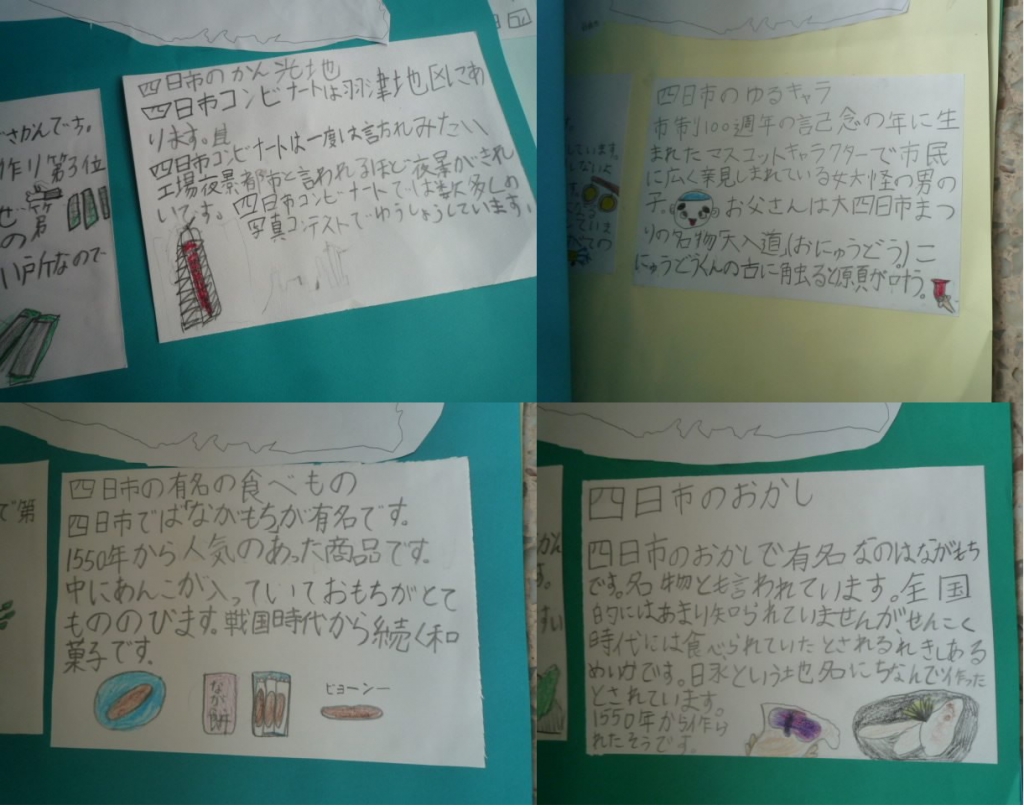 四日市のかん光地
四日市コンビナートは羽津地区にあ
ります。
四日市コンビナートは一度は訪れみたい
工場夜景都市と言われるほど夜景がきれ
いです。四日市コンビナートでは数多しの
写真コンテストでゆうしょうしています。
さかんです。
作り第3位
の
戸なので
四日市のゆるキャラ
市制100週年の記念の年に生
まれたマスコットキャラクターで市民
に広く親しまれている妖怪の男の
子。お父さんは大四日市まつ
りの名物「大入道」(おにゅうどう)こ
にゅうどうくんの舌に触ると願が叶う。
四日市の有名の食べもの
四日市では「ながもち」が有名です。
1550年から人気のあった商品です。
中にあんこが入っていておもちがとて
もののびます。戦国時代から続く和
菓子です。
なが餅
ビョーンー
で第
四日市のおかし
四日市のおかしで有名なのはながもち
です。名物とも言われています。全国
的にはあまり知られていませんが、せんこく
時代には食べられていたとされるれきしある
めいかです。日永という地名にちなんで作った
とされています。
1550年から作ら
れたそうです。